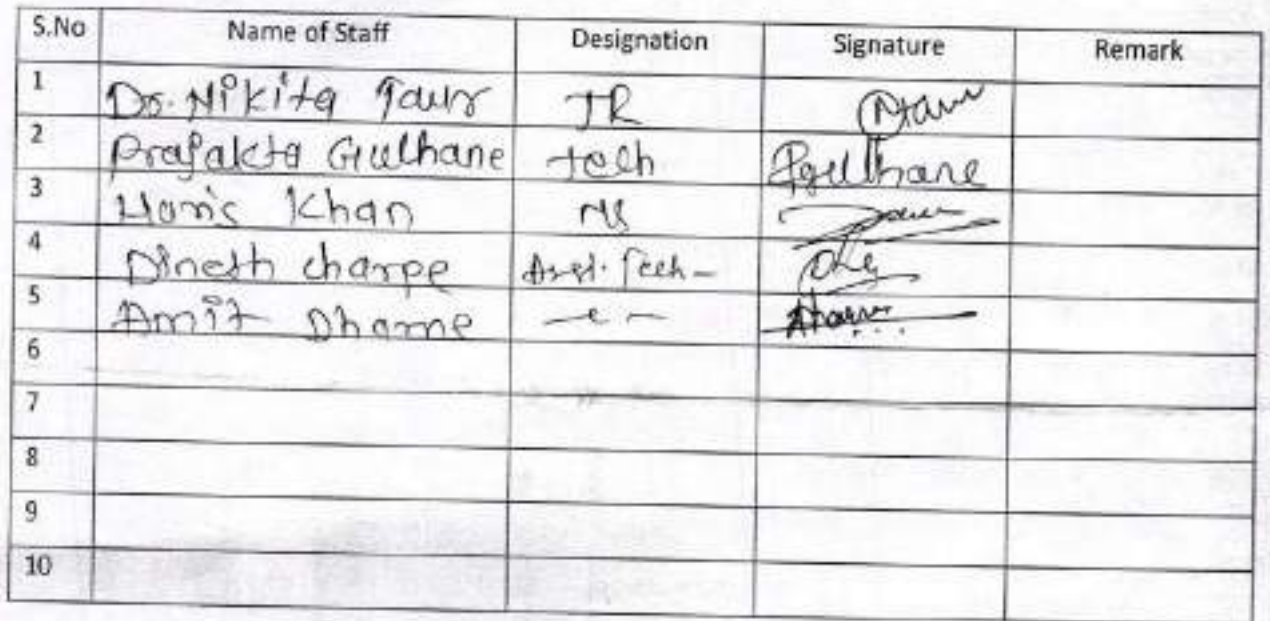 S.No Name of Staff Designation Signature Remark
1 Dr. Nikita Taur JR
2 Prajakta Gulhane tech Pgulhane
3 Haris Khan NS
4 Dinesh charpe Asst. Tech -
5 Amit Dhorne
6
7
8
9
10